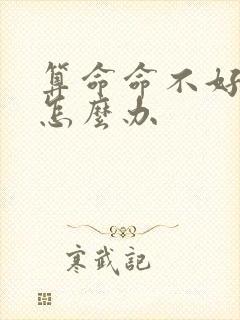 算命命不好
怎麼办
寒武記